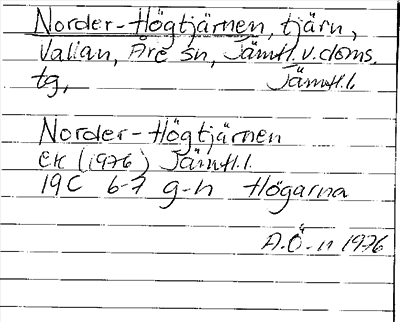 Norder-Högtjärnen, tjärn,
Valian, Åre sn, Jämtl. v. doms.
tg, Jämtl. l.
Norder-Högtjärnen
ek (1976) Jämtl. l.
19C 6-7 g-h Högarna
A.Ö-n 1976